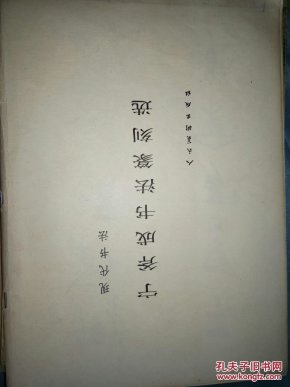 现代书法
宁斧成书法篆刻选
人民美术出版社
孔夫子旧书网